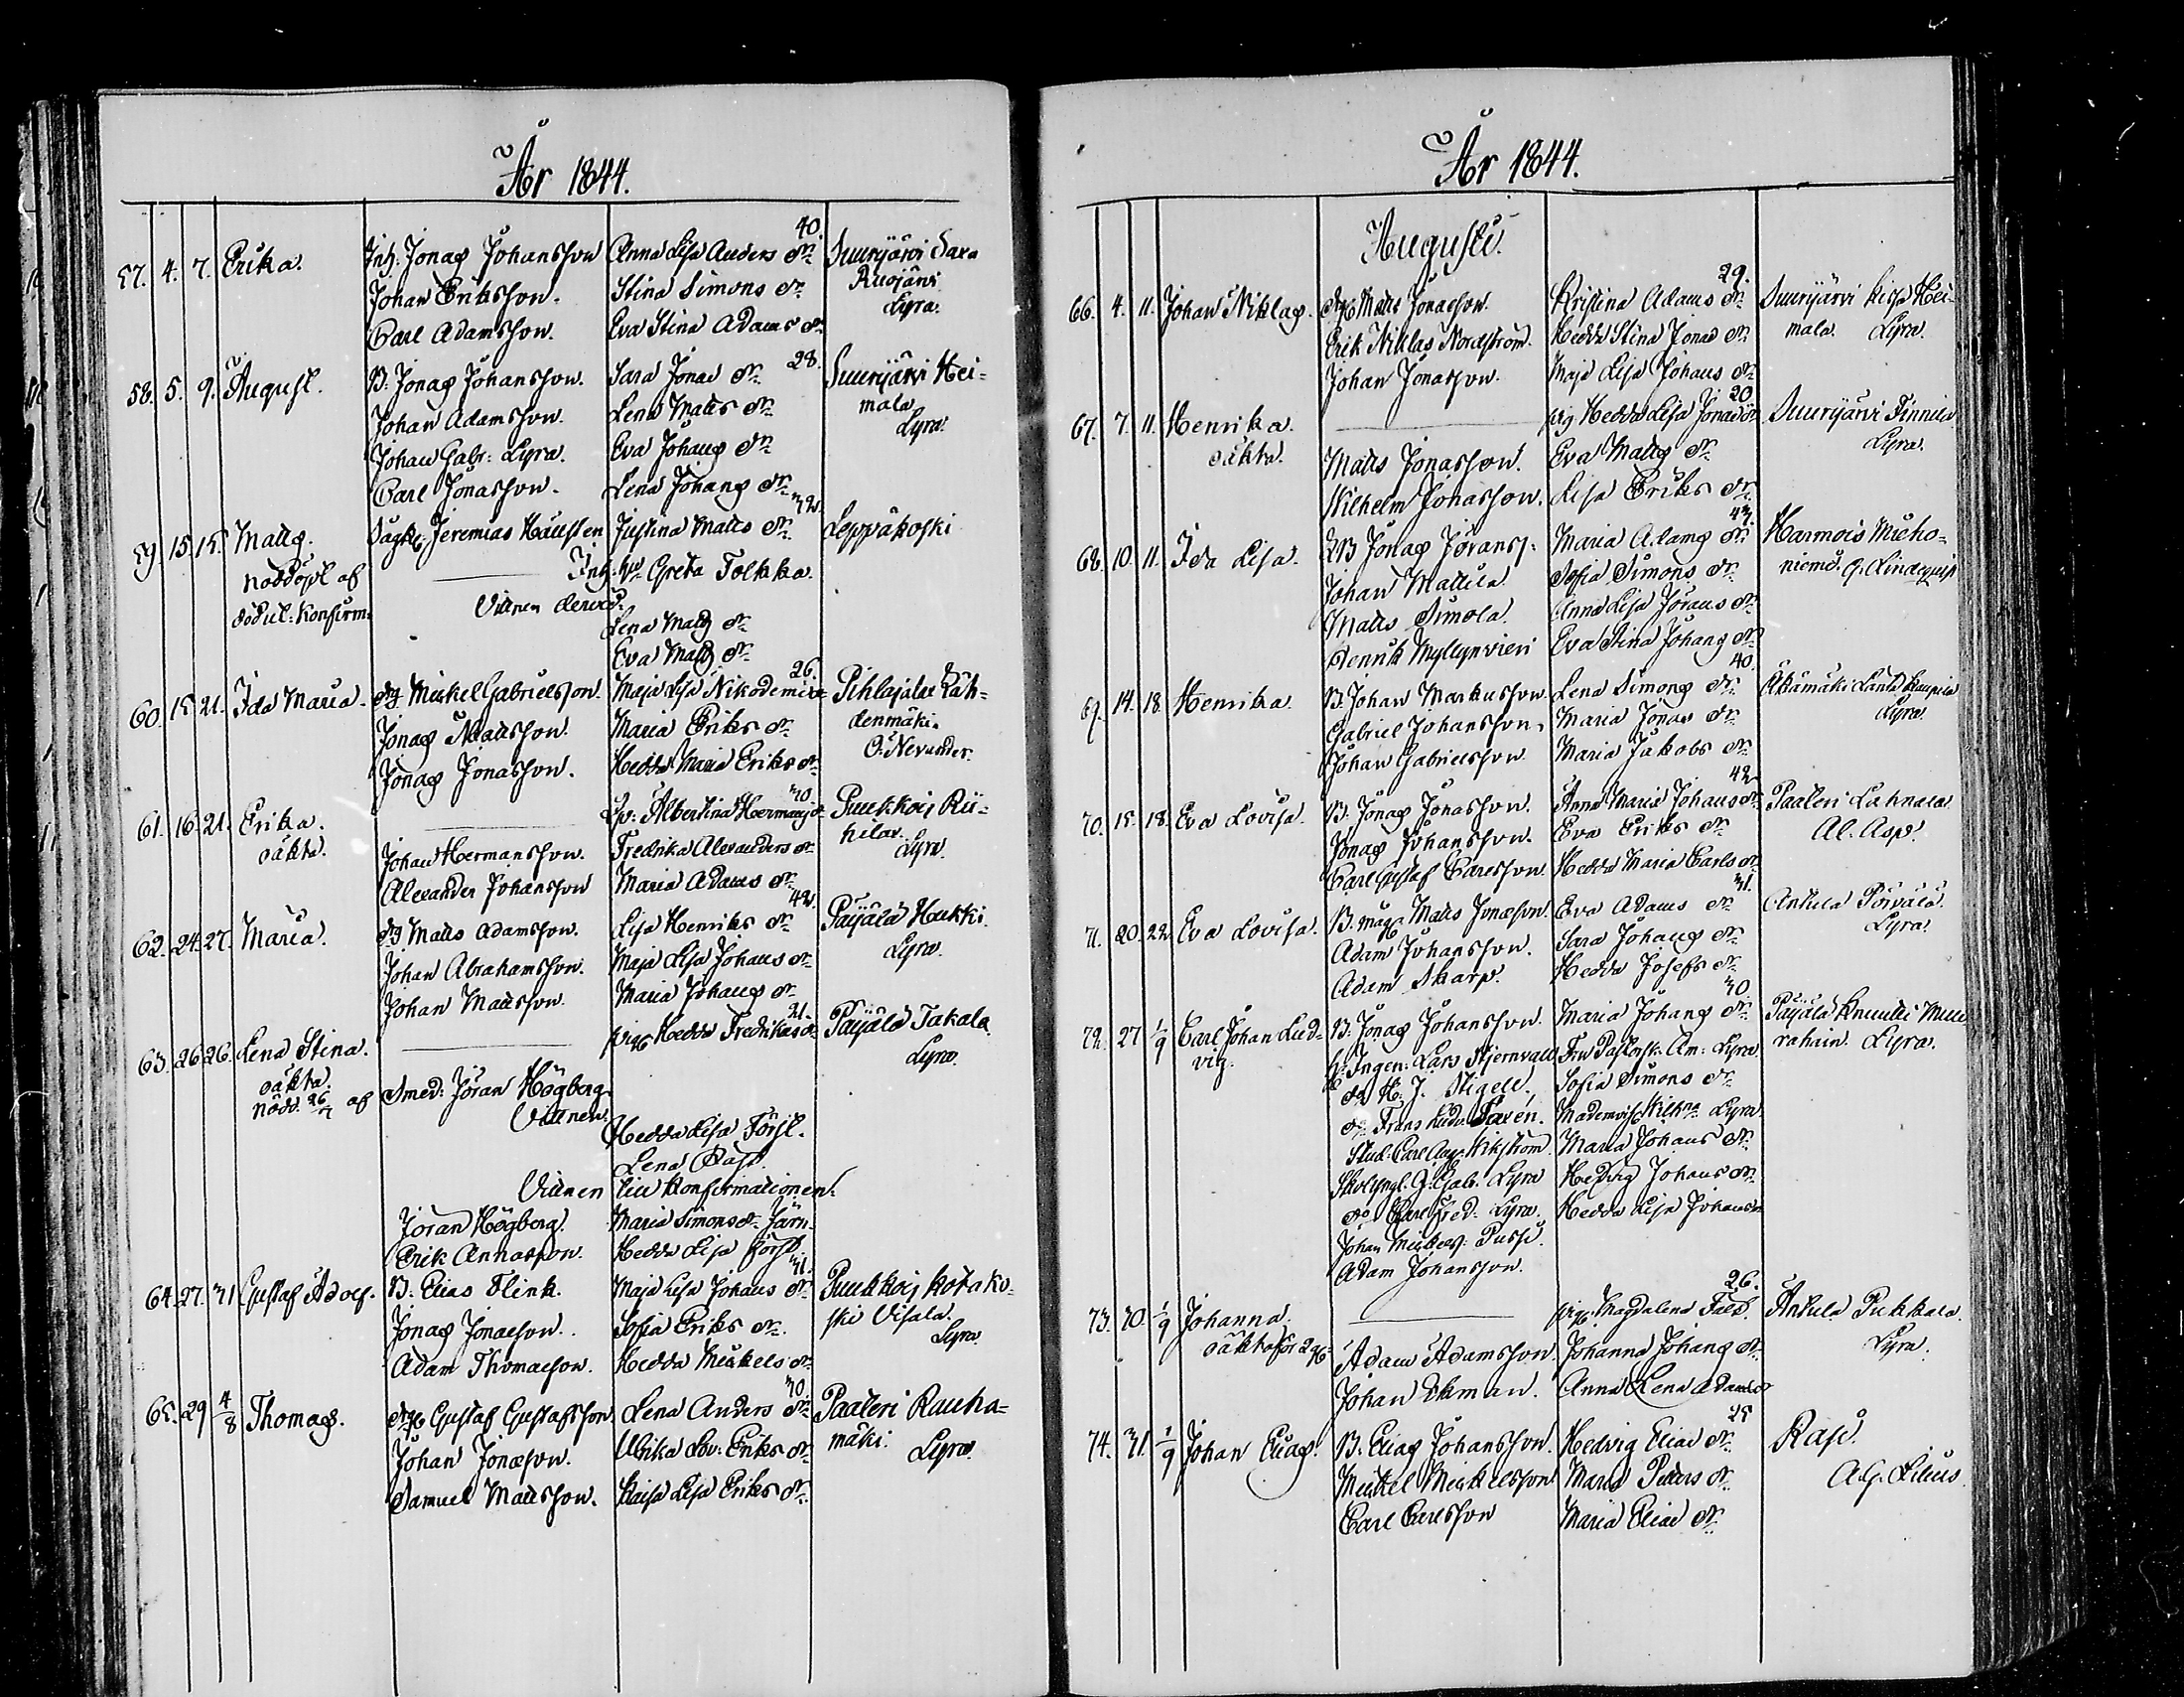 År 1844.
40.
57. 4. 7. Erika. Inh. Jonas Johansson Anna Lisa Anders dr. Suurijärvi Saxa
Johan Eriksson. Stina Simons dr. Ruojärvi
Carl Adamsson. Eva Stina Adams dr. Lyra.
58. 5. 9. August. B. Jonas Johansson. Sara Jonas dr. 28. Suurijärvi Hei-
Johan Adamsson. Lena Matts dr. mala.
Johan Gabr: Lyra. Eva Johans dr. Lyra.
Carl Jonasson. Lena Johans dr.
32.
59. 15. 15. Matts. Jeremias Justina Matts dr. Leppäkoski
Nöddöpt af Inh. Greta Tolkka.
Vittnen
Lena Matts dr.
Eva Matts dr.
26.
60. 15. 21. Ida Maria. Drg Mickel Gabrielsson. Maja Lisa Nikodemi dr. Pihlajalax Läh-
Jonas Mattsson. Maria Eriks dr. denmäki.
Jonas Jonasson. Hedda Maria Eriks dr. O. Nevander.
30.
61. 16. 21. Erika. Albertina Hermans dr. Puukkois Rii-
oäkta. Johan Hermansson. Fredrika Alexanders dr. hilax.
Alexander Johansson Maria Adams dr. Lyra.
42.
62. 24. 27. Maria. Drg Matts Adamsson. Lisa Henriks dr. Päijälä Hukki.
Johan Abrahamsson. Maja Lisa Johans dr. Lyra.
Johan Mattsson. Maria Johans dr.
21.
63. 26. 26. Lena Stina. pig. Hedda Fredriks dr. Päijälä Takala
oäkta. Lyra.
Nödd. 26/7 af Smed: Jöran Högberg.
Vittnen.
Hedda Lisa Förss.
Lena Rasi.
Vittnen till Konfirmationen.
Jöran Högberg. Maria Simons dr. Järn.
Erik Annasson. Hedda Lisa Förss.
31.
64. 27. 31 Gustaf Adolf. B. Elias Flink. Maja Lisa Johans dr. Puukkois Kotako-
Jonas Jonasson. Sofia Eriks dr. ski Visala.
Adam Thomasson. Hedda Mickels dr. Lyra
30.
65. 29 4/8 Thomas. Drg Gustaf Gustafsson. Lena Anders dr. Paateri Rauha-
Johan Jonasson. Ulrika Lov: Eriks dr. mäki.
Samuel Mattsson. Kaisa Lisa Eriks dr. Lyra.
År 1844.
Augusti.
29.
66. 4. 11. Johan Niklas. Drg Matts Jonasson. Kristina Adams dr. Suurijärvi Hei-
Erik Niklas Nordström. Hedda Stina Jonas dr. mala. Lyra.
Johan Jonasson. Maja Lisa Johans dr.
20
67. 7. 11. Henrika. pig Hedda Lisa Jonas dr. Suurijärvi Finnilä
oäkta. Matts Jonasson. Eva Matts dr. Lyra.
Wilhelm Jonasson. Lisa Eriks dr.
43.
68. 10. 11. Ida Lisa. Jonas Jöranss: Maria Adams dr. Harmois Mieho-
Johan Mattila Sofia Simons dr. niemi. G. Lindequist
Matts Simola. Anna Lisa Jörans dr.
Henrik Myllynvieri Eva Stina Johans dr.
40.
69. 14. 18. Henrika. B. Johan Markusson. Lena Simons dr.
Gabriel Johansson. Maria Jonas dr. Lyra.
Johan Gabrielsson Maria Jakobs dr.
42
70. 15. 18. Eva Lovisa. B. Jonas Jonasson. Anna Maria Johans dr. Paateri Lahnala
Jonas Johansson. Eva Eriks dr. Al. Asp.
Carl Gustaf Carlsson. Hedda Maria Carls dr.
31.
71. 20. 22 Eva Lovisa. B. måg Matts Jonasson. Eva Adams dr. Anttila
Adam Johansson. Sara Johans dr. Lyra.
Adam Skarp. Hedda Josefs dr.
30.
72. 27 1/9 Carl Johan Lud- B. Jonas Johansson. Maria Johans dr. Päijälä Knuuti
vig. Ingen: Lars Stjernvall Fru Pastorsk: Am: Lyra rahain. Lyra.
do H. J. Stigell. Sofia Simons dr.
do Frans Ludv. Mademois. Lyra
Stud: Carl Aug. Wikström. Maria Johans dr.
Skolyngl. G. Gab. Lyra Hedvig Johans dr.
do Carl Fred: Lyra. Hedda Lisa Johans dr.
Johan Mickelss:
Adam Johansson.
26.
73. 30. 1/9 Johanna. pig. Magdalena Anttila Pukkala.
oäkta för 2 Adam Adamsson. Johanna Johans dr. Lyra.
Johan Ekman. Anna Lena Adams dr.
25
74. 31. 1/9 Johan Elias. B. Elias Johansson. Hedvig Elias dr. Rasi.
Mickel Mickelsson Maria Petters dr. A. G. Lilius.
Carl Carlsson Maria Elias dr.